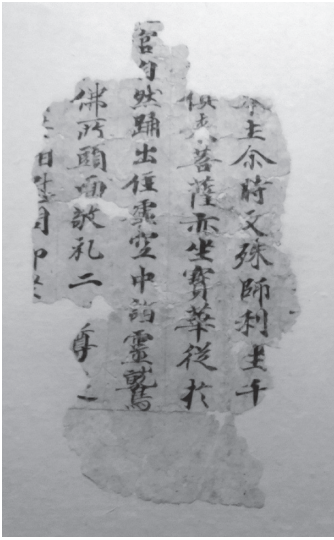 土尒時文殊師利坐千
俱来菩薩亦坐寶華從於
宮自然踊出住虛空中詣靈鷲
佛所頭面敬礼二尊
相慰問却